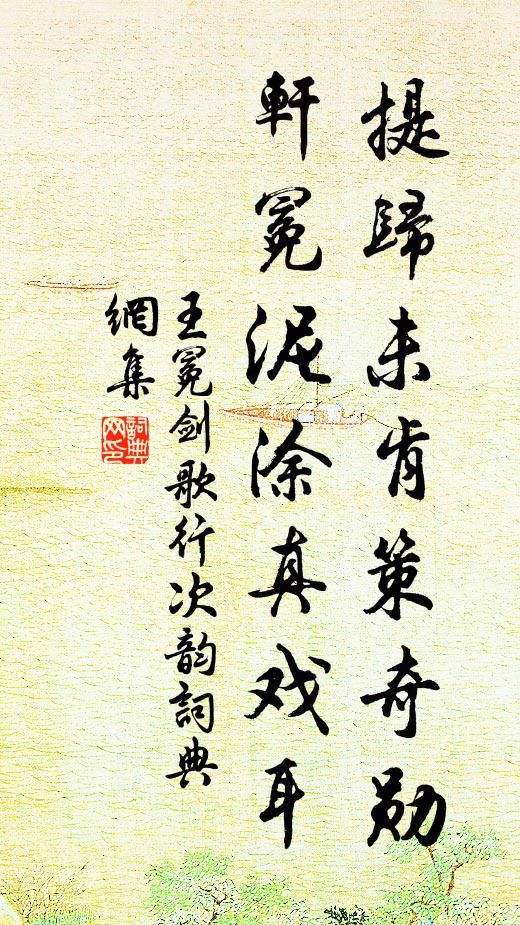 提歸未肯策奇勋
軒冕泥涂真戏耳
王冕剑歌行次韵詞典
網集
詞典
网印